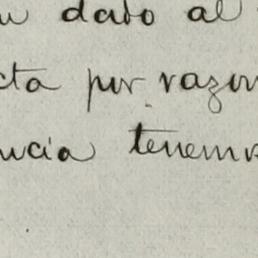 dado al
cta por razon
ncia tenem